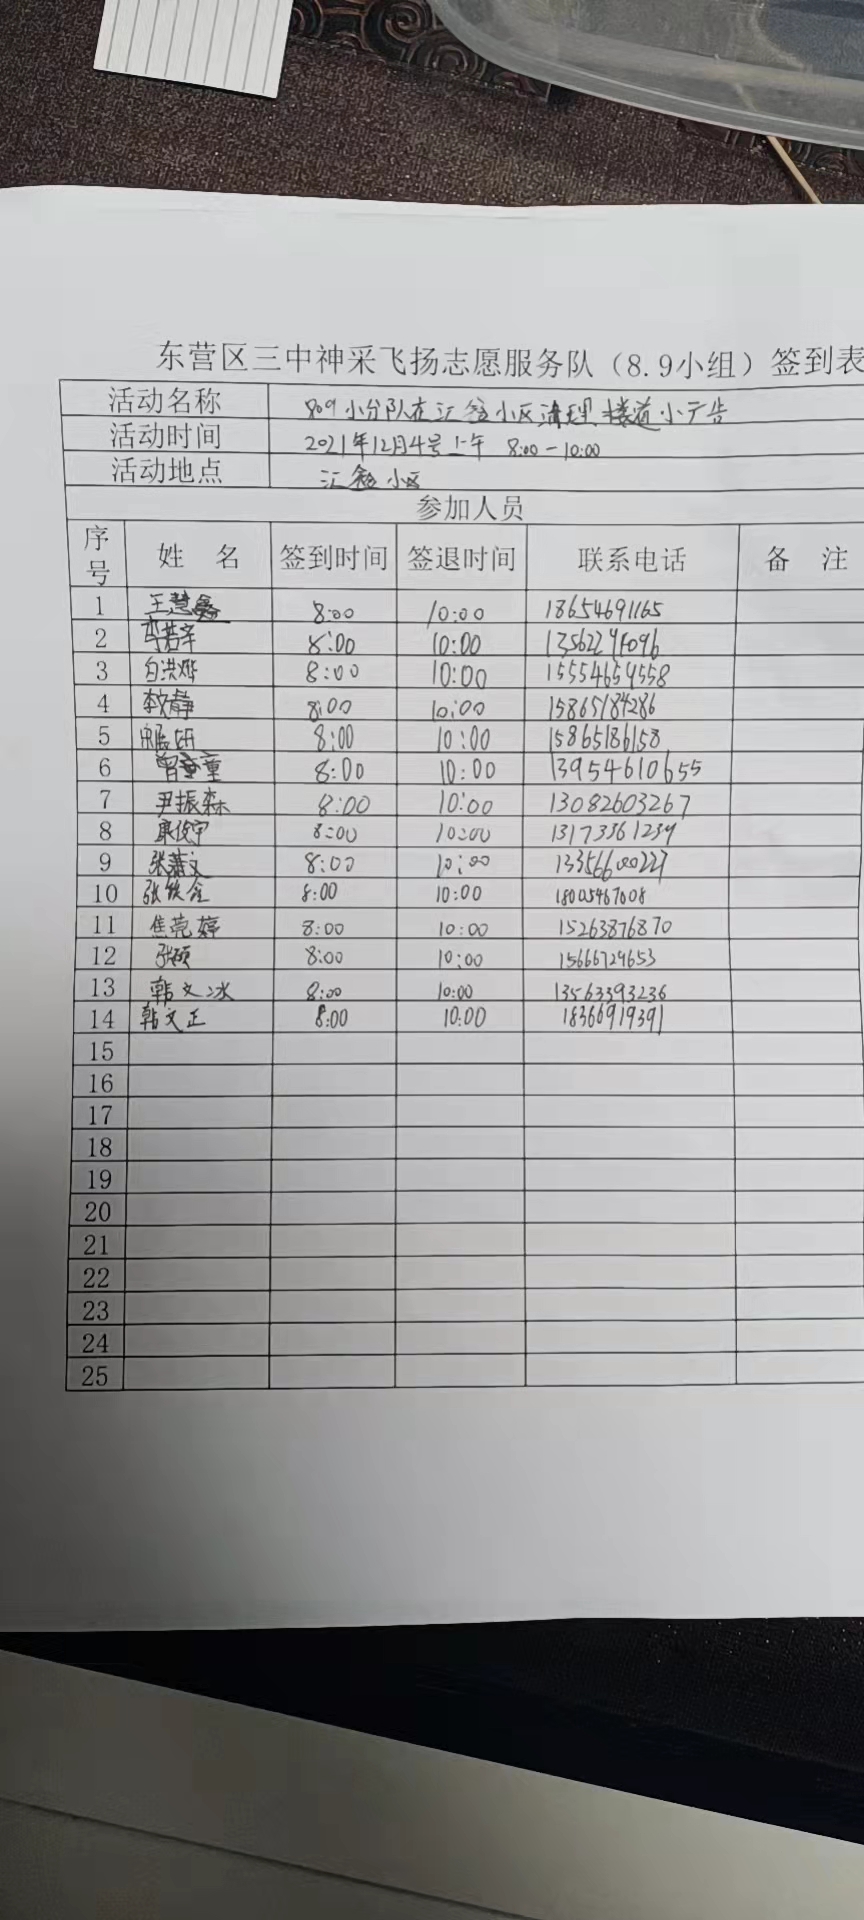 东营区三中神采飞扬志愿服务队（8.9小组）签到表
活动名称 809小分队在汇鑫小区清理楼道小广告
活动时间 2021年12月4号上午 8:00-10:00
活动地点 汇鑫小区
参加人员
序号 姓 名 签到时间 签退时间 联系电话 备 注
1 王慧鑫 8:00 10:00 18654691165
2 8:00 10:00 13562294096
3 白洪烨 8:00 10:00 15554659558
4 李文静 8:00 10:00 15865184286
5 8:00 10:00 15865186158
6 曾童童 8:00 10:00 13954610655
7 尹振森 8:00 10:00 13082603267
8 康俊宇 8:00 10:00 13173361239
9 8:00 10:00 13356600227
10 8:00 10:00 18005467008
11 焦莞婷 8:00 10:00 15263876870
12 张硕 8:00 10:00 15666729653
13 韩文冰 8:00 10:00 13563393236
14 韩文正 8:00 10:00 18366919391
15
16
17
18
19
20
21
22
23
24
25